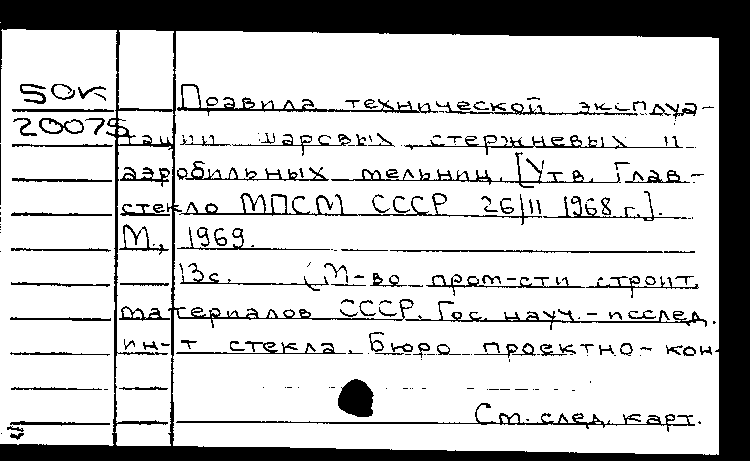 50К
20075
Правила технической эксплуа-
тации шаровых, стержневых и
аэробильных мельниц. [Утв. Глав-
стекло МПСМ СССР 26/II 1968 г.].
М., 1969.
13с. (М-во пром-сти строит.
материалов СССР. Гос. науч.-исслед.
ин-т стекла. Бюро проектно-кон-
См. след. карт.